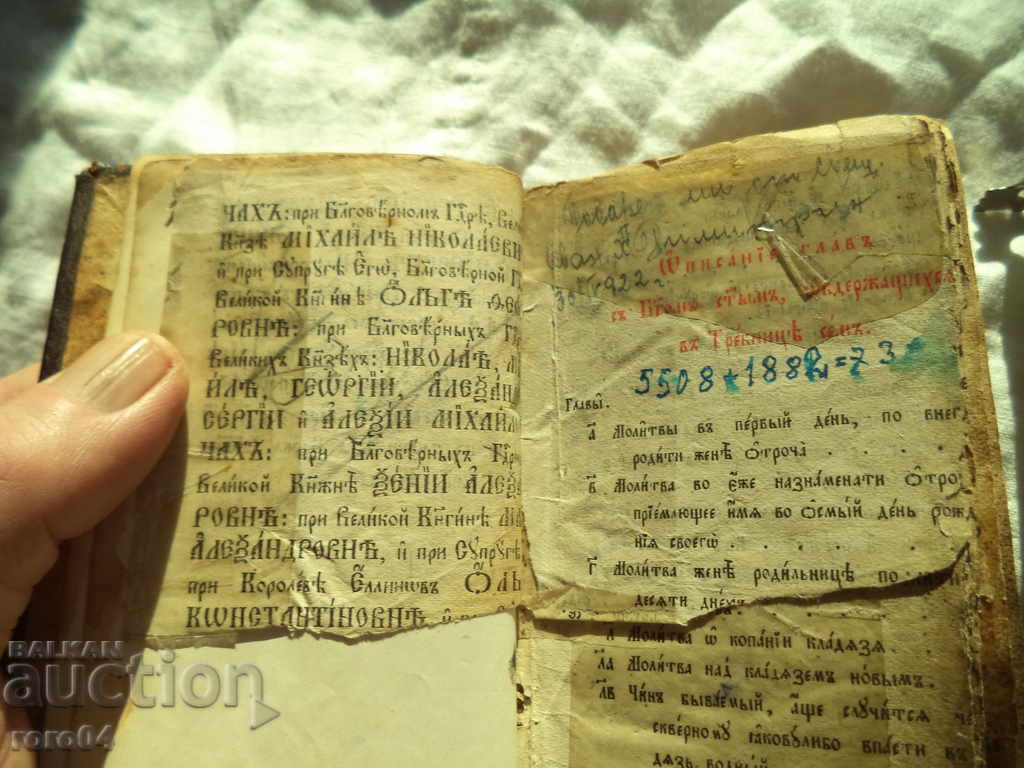 ЧАХЪ: при Бл҃говѣрномъ Гд҃рѣ,
Кн҃зѣ МІХАИЛѢ НІКОЛАЕВИ
и при Сꙋпрꙋгѣ Єгѡ̀, Бл҃говѣрной
Великой Кн҃гинѣ Ѻ҆ЛЬГѢ Ѳео
РОВНѢ: при Бл҃говѣрныхъ
Великихъ Кн҃зѣхъ: НІКОЛАѢ,
ИЛѢ, ГЕѠРГІИ, АЛЕѮАН
СЕРГІИ и АЛЕѮІИ МІХАИЛ
ЧАХЪ: при Бл҃говѣрныхъ
Великой Кн҃жнѣ ѮЕНІИ АЛЕѮ
РОВНѢ: при Великой Кн҃гинѣ
АЛЕѮАНДРОВНѢ, и при Сꙋпрꙋгѣ
при Королевѣ Єллинѡвъ Ѻ҆ЛЬ
КѠНСТАНТІНОВНѢ и
922 г.
Ѡписаніе главъ
съ Бг҃омъ ст҃ымъ, содержащихсѧ
въ Требницѣ семъ.
5508 + 188 = 73
Главы̀.
а҃ Молитвы въ первый день, по внегда
родити женѣ ѻ҆троча̀ . . . . .
в҃ Молитва во є҆́же назнаменати ѻ҆тро
пріемлющее и҆́мѧ во ѻ҆смый день рожд
нїѧ своегѡ̀ . . . . . .
г҃ Молитва женѣ родильницѣ по
десѧти днехъ
Молитва ѡ҆ копаніи кладѧзѧ.
л҃а Молитва над кладѧземъ новымъ.
л҃в Чинъ бываемый, аще слꙋчитсѧ
скверномꙋ ꙗ҆ковꙋлибо впасти въ
дѧзь
BALKAN
auction
roro04